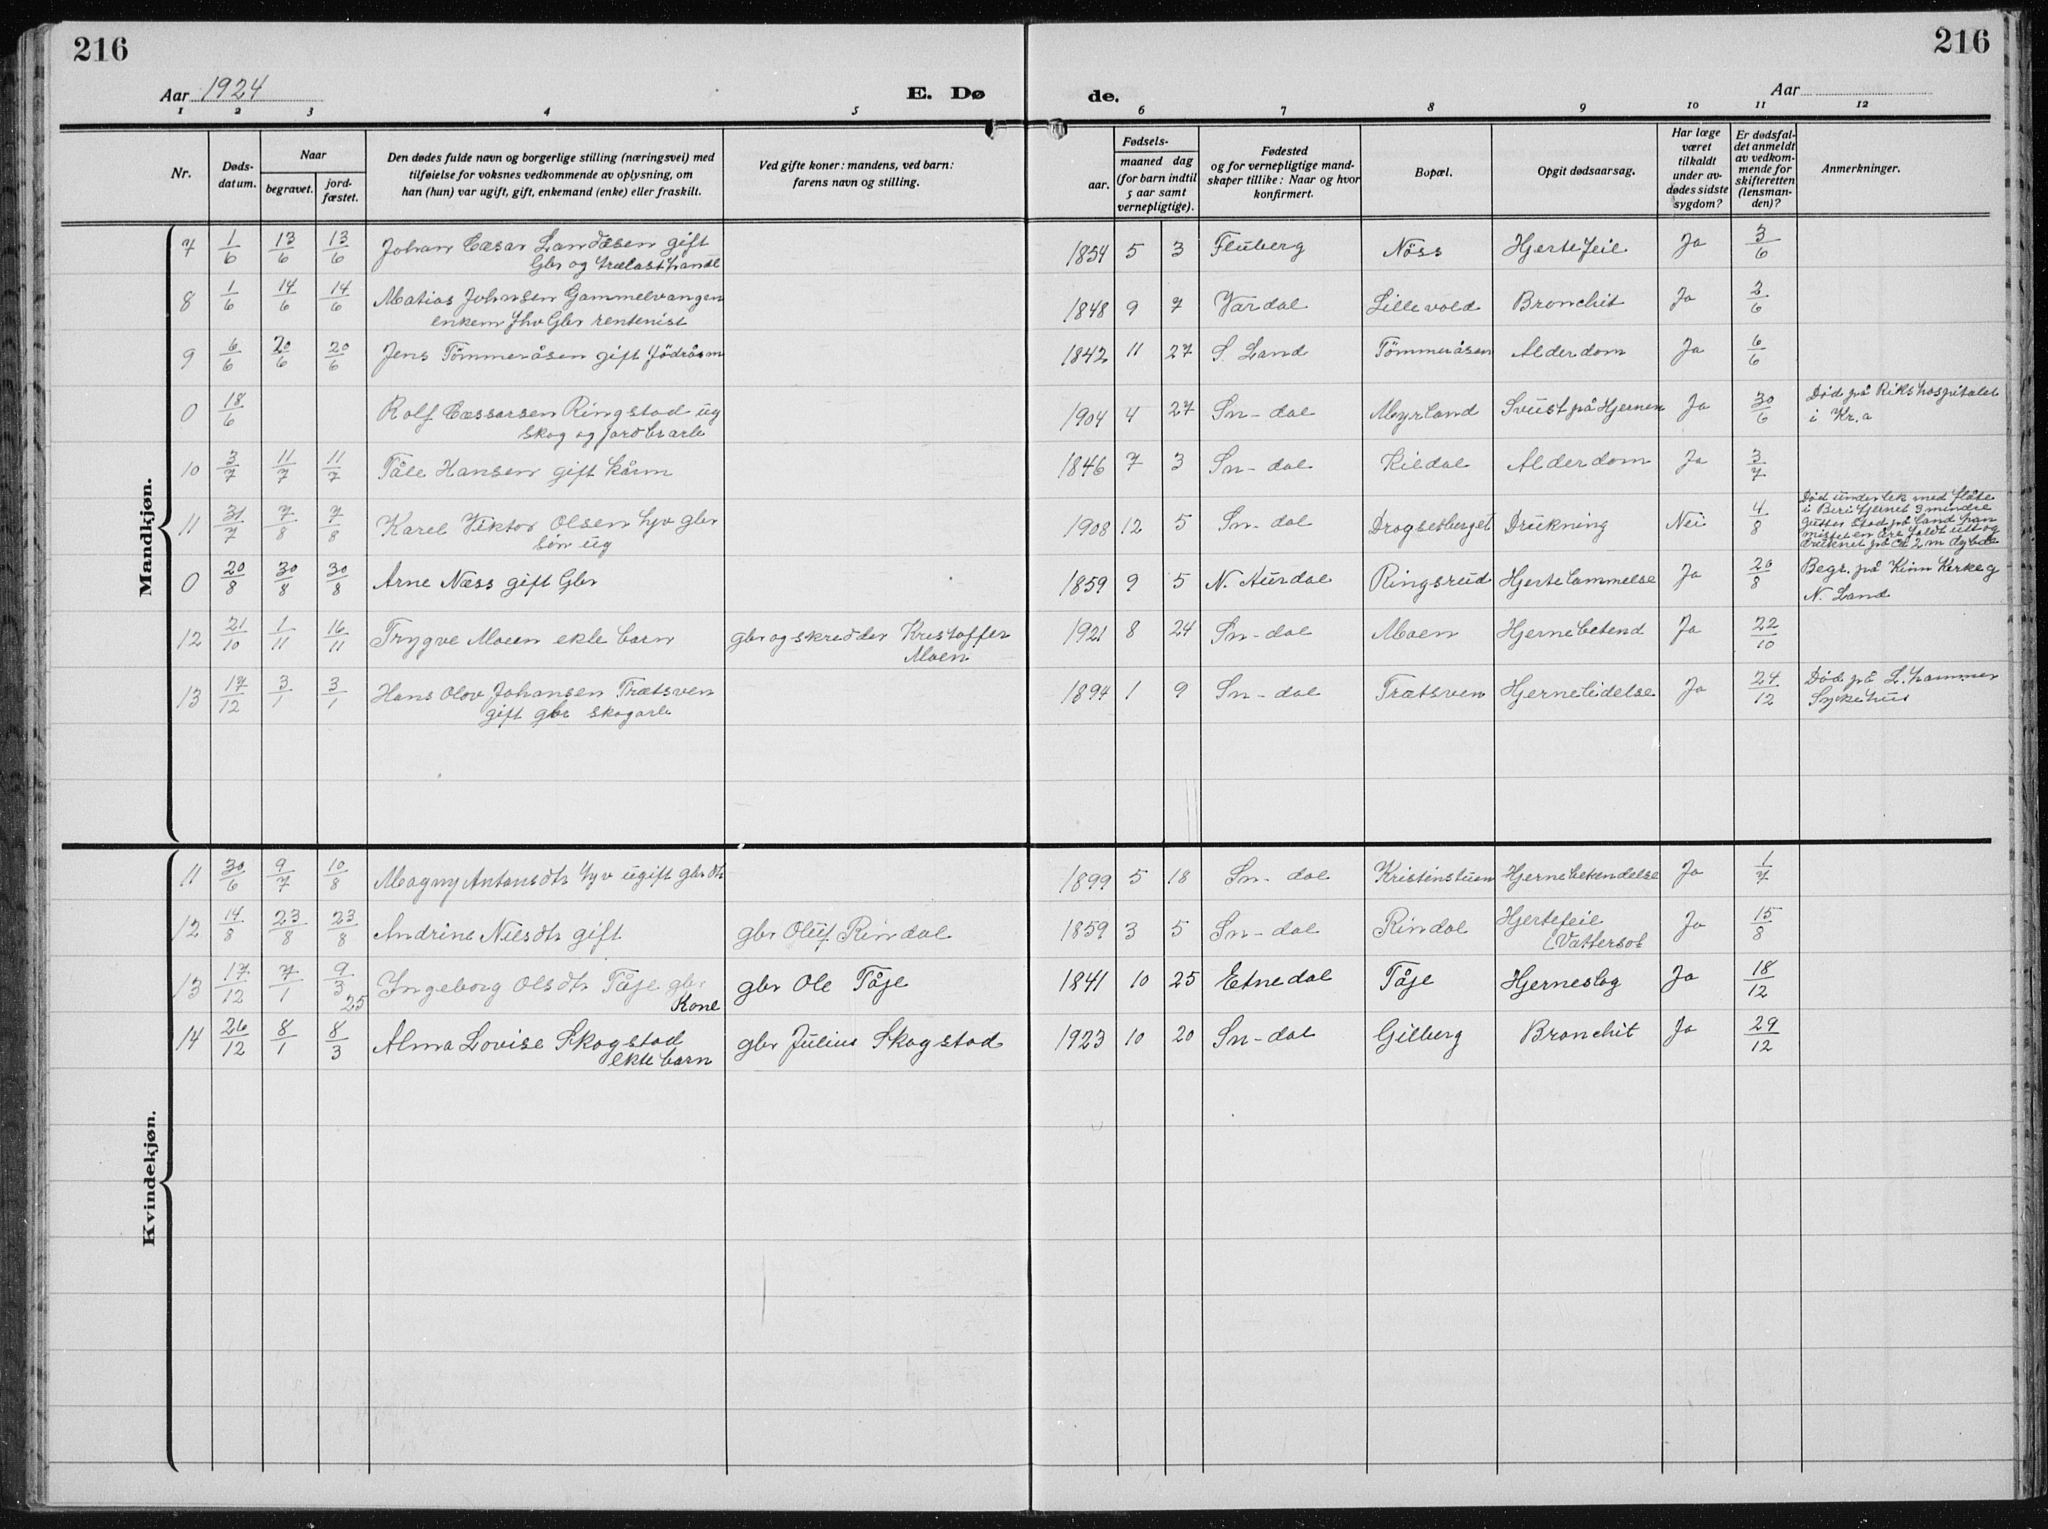 216
216
Aar 1924
E. Dø
de.
Aar
1 2 3 4 5 6 7 8 9 10 11 12
Nr.
Døds-
datum.
Naar
begravet.
jord-
fæstet.
Den dødes fulde navn og borgerlige stilling (næringsvei) med
tilføielse for voksnes vedkommende av oplysning, om
han (hun) var ugift, gift, enkemand (enke) eller fraskilt.
Ved gifte koner: mandens, ved barn:
farens navn og stilling.
Fødsels-
aar.
maaned dag
(for barn indtil
5 aar samt
vernepligtige).
Fødested
og for vernepligtige mand-
skaper tillike: Naar og hvor
konfirmert.
Bopæl.
Opgit dødsaarsag.
Har læge
været
tilkaldt
under av-
dødes sidste
sygdom?
Er dødsfal-
det anmeldt
av vedkom-
mende for
skifteretten
(lensman-
den)?
Anmerkninger.
Mandkjøn.
7 1/6 13/6 13/6 Johan Cæsar Landåsen gift 1854 5 3 Fluberg Nöss Hjertefeil Ja 3/6
Gbr og trælasthandl
8 1/6 14/6 14/6 Matias Johnsen Gammelvangen 1848 9 7 Vardal Lillevold Bronchit Ja 2/6
enkem fhv Gbr rentenist
9 6/6 20/6 20/6 Jens Tömmeråsen gift födråsm 1842 11 27 S. Land Tömmeråsen Alderdom Ja 6/6
0 18/6 Rolf Cæssarsen Ringstad ug 1904 4 27 Sn-dal Myrland Svust på Hjernen Ja 30/6 Död på Rikshospitalet
skog og jordbrarb i Kr.a
10 3/7 11/7 11/7 Tåle Hansen gift kårm 1846 7 3 Sn-dal Kildal Alderdom Ja 3/7
11 31/7 7/8 7/8 Karel Viktor Olsen Lyv gbr 1908 12 5 Sn-dal Drogsetberget Drukning Nei 4/8 Död under lek med flåte
sön ug
i Beritjernet 3 mindre
gutter stod på land han
mistet en åre faldt utt og
druknet på ca 2 m dybde
0 20/8 30/8 30/8 Arne Næss gift Gbr 1859 9 5 N. Aurdal Ringsrud Hjertelammelse Ja 20/8 Begr. på Kinn Kirkeg
N. Land
12 21/10 1/11 16/11 Trygve Moen ekte barn gbr og skredder Kristoffer 1921 8 24 Sn-dal Moen Hjernebetend Ja 22/10
Moen
13 17/12 3/1 3/1 Hans Olov Johansen Trætsven 1894 1 9 Sn-dal Trætsven Hjernelidelse Ja 24/12 Död på L.hammer
gift gbr skogarb Sykehus
Kvindekjøn.
11 30/6 9/7 10/8 Magny Antonsdtr Lyv ugift gbr dtr 1899 5 18 Sn-dal Kristinstuen Hjernebetendelse Ja 1/7
12 14/8 23/8 23/8 Andrine Nilsdtr gift gbr Oluf Rindal 1859 3 5 Sn-dal Rindal Hjertefeil Ja 15/8
(Vattersot
13 17/12 7/1 9/3 25 Ingeborg Olsdtr Tåje gbr gbr Ole Tåje 1841 10 25 Etnedal Tåje Hjerneslag Ja 18/12
Kone
14 26/12 8/1 8/3 Alma Lovise Skogstad gbr Julius Skogstad 1923 10 20 Sn-dal Gilberg Bronchit Ja 29/12
ekte barn